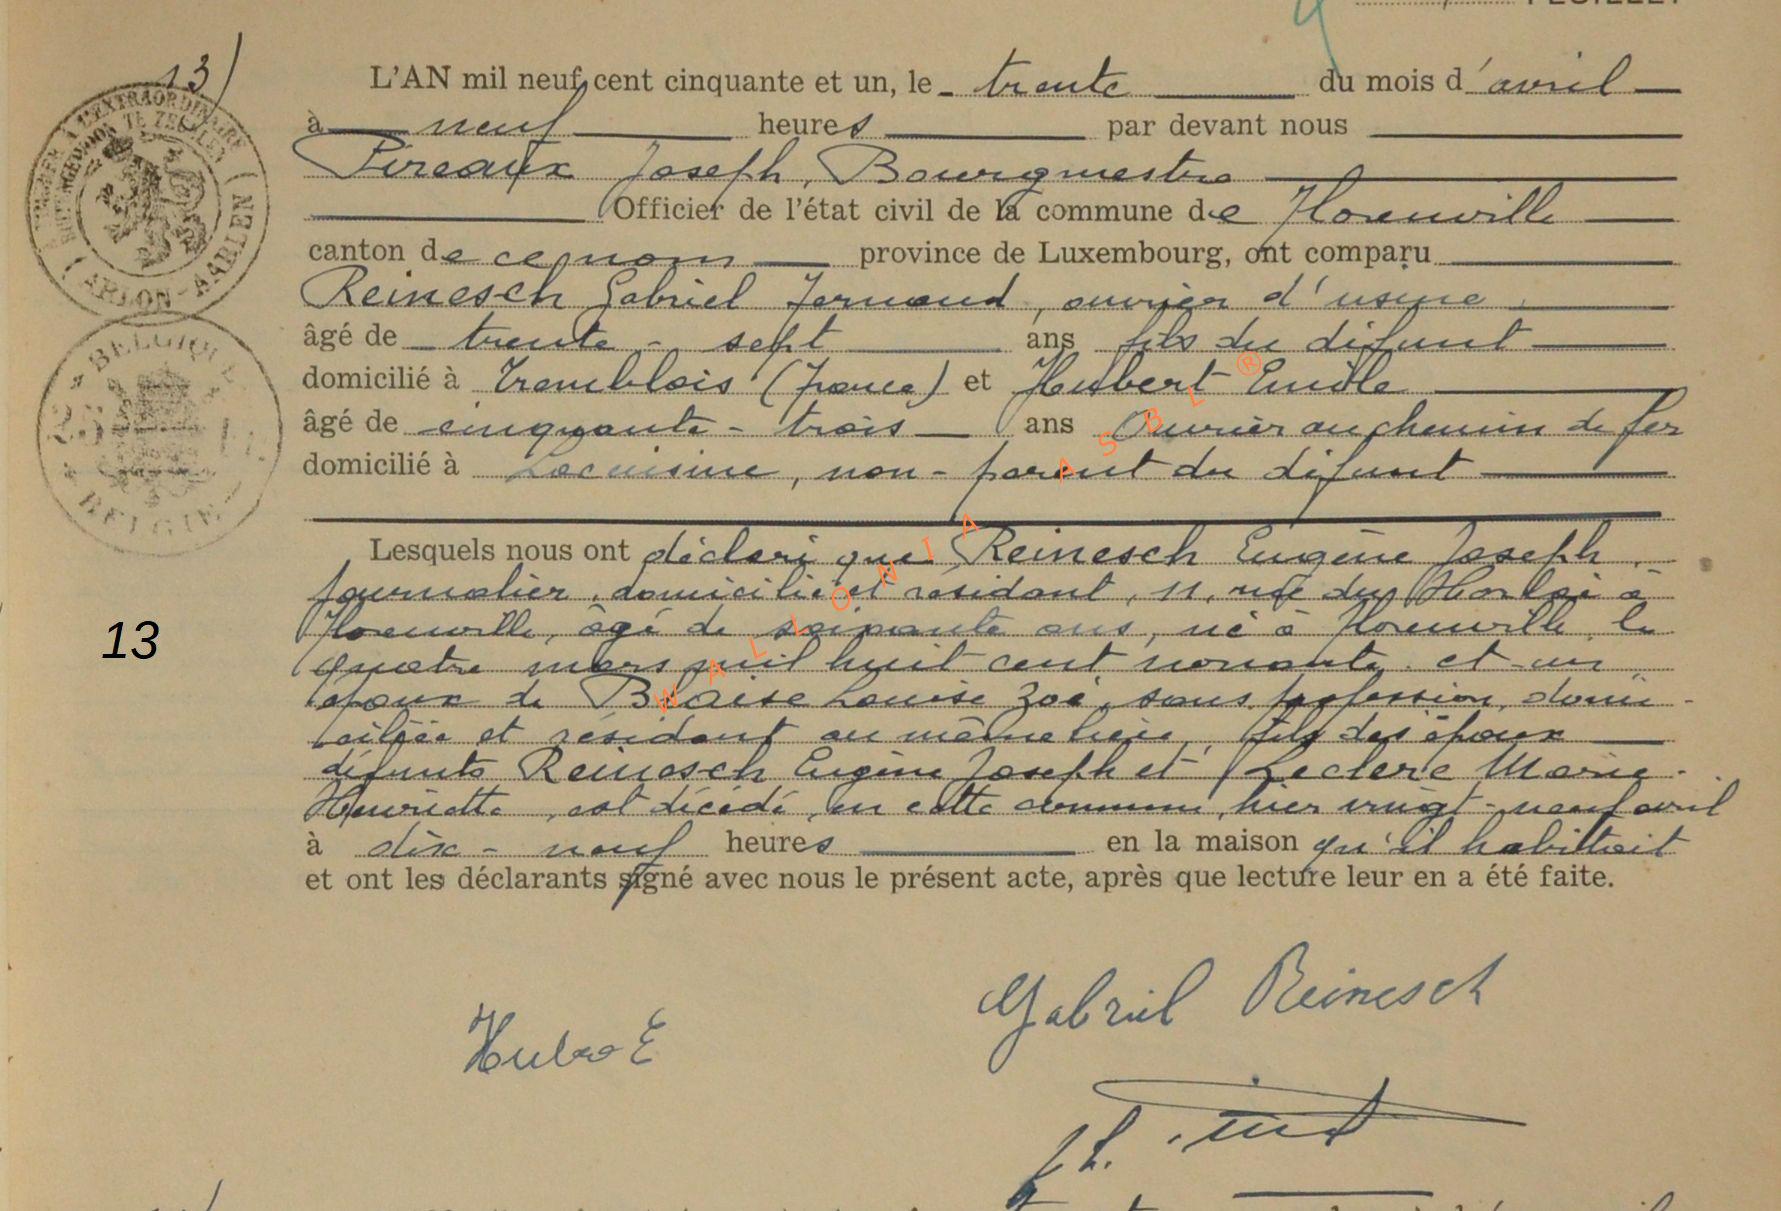 FEUILLET
13/
L'AN mil neuf cent cinquante et un, le trente du mois d'avril
à neuf heures par devant nous
Pireaux Joseph, Bourgmestre
Officier de l'état civil de la commune de Florenville
canton de ce nom province de Luxembourg, ont comparu
Reinesch Gabriel Fernand, ouvrier d'usine
âgé de trente-sept ans fils du défunt
domicilié à Tremblois (france) et Hubert Emile
âgé de cinquante-trois ans Ouvrier au chemin de fer
domicilié à Lacuisine, non-parent du défunt
Lesquels nous ont déclaré que Reinesch Eugène Joseph,
journalier, domicilié et résidant, 11, rue du Harloi à
Florenville, âgé de soixante ans, né à Florenville, le
quatre mars mil huit cent nonante et un
époux de Blaise Louise Zoé, sans profession, domi-
ciliée et résidant au même lieu, fils des époux
défunts Reinesch Eugène Joseph et Leclerc Marie-
Henriette, est décédé, en cette commune, hier vingt-neuf avril
à dix-neuf heures en la maison qu'il habitait
et ont les déclarants signé avec nous le présent acte, après que lecture leur en a été faite.
13
WALLONIA ASBL ®
BELGIQUE
BELGIE
ARLON-AARLEN
Gabriel Reinesch
Hubert E